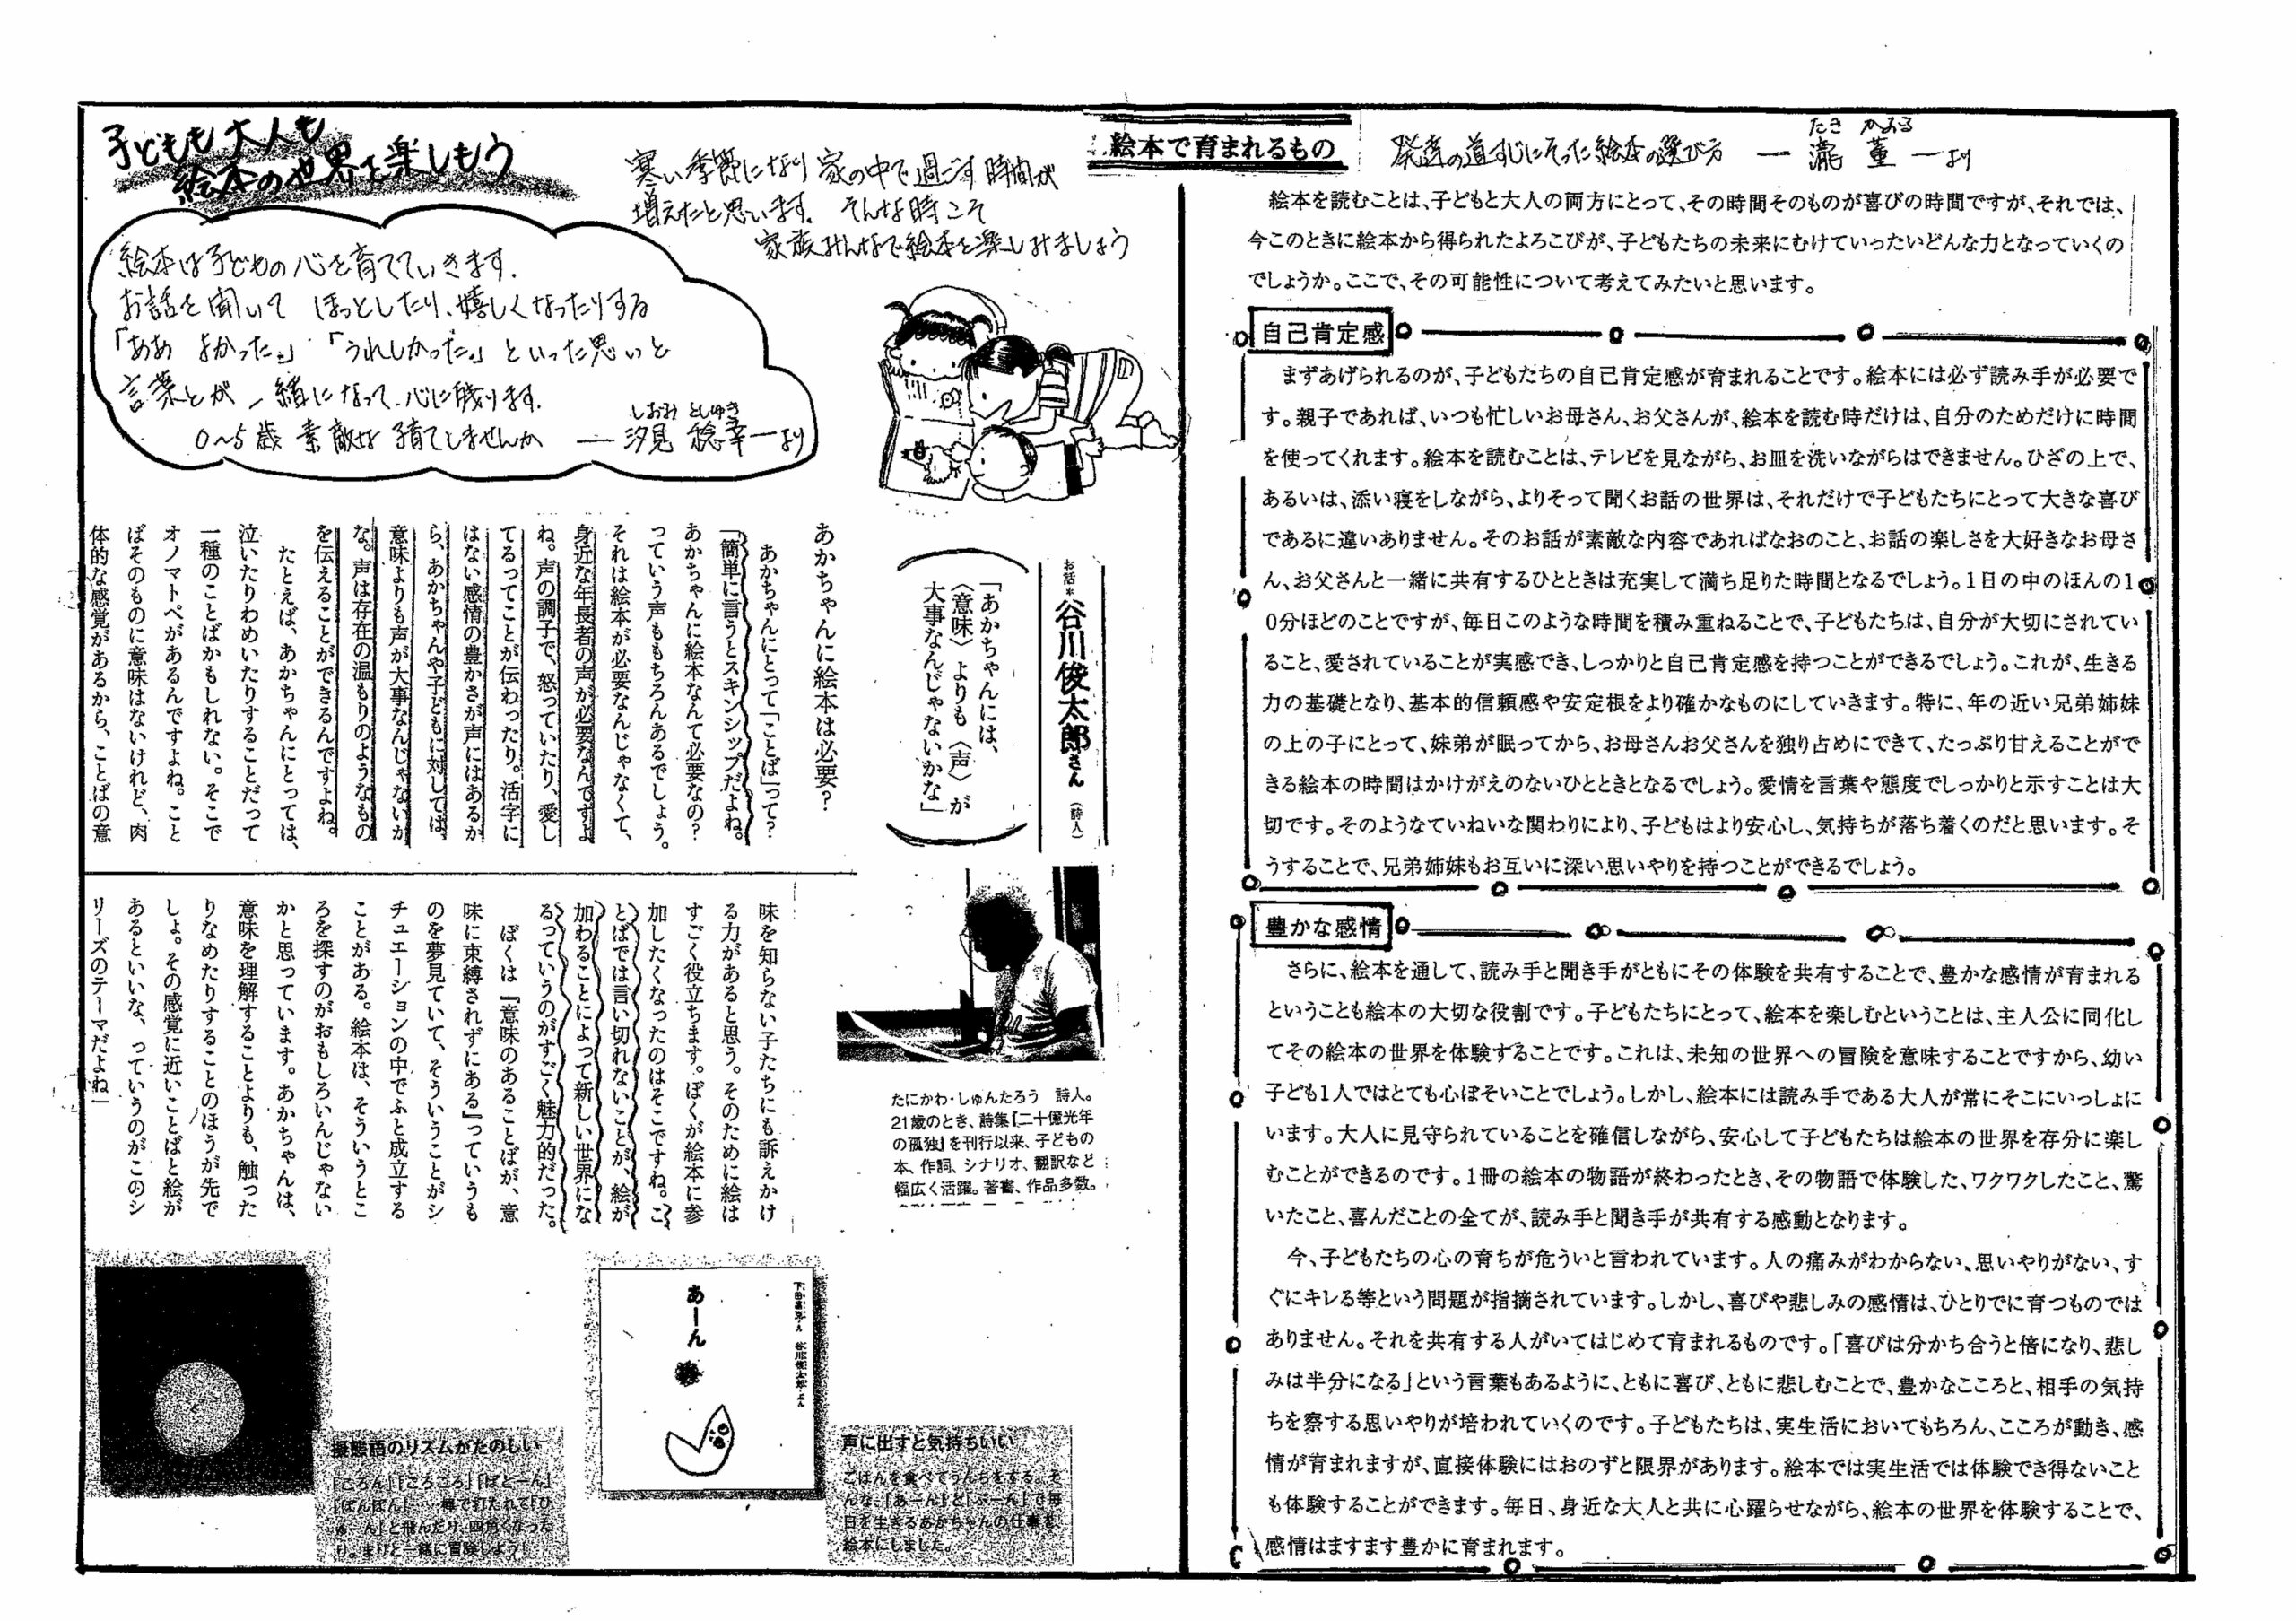 子どもも大人も
絵本の世界を楽しもう
寒い季節になり家の中で過ごす時間が
増えたと思います。そんな時こそ
家族みんなで絵本を楽しみましょう
絵本は子どもの心を育てていきます.
お話を聞いて ほっとしたり、嬉しくなったりする
「ああ よかった。」「うれしかった。」といった思いと
言葉とが一緒になって、心に残ります.
0〜5歳 素敵な子育てしませんか
しおみ としゆき
― 汐見 稔幸 ―より
お話*谷川俊太郎さん(詩人)
「あかちゃんには、
〈意味〉よりも〈声〉が
大事なんじゃないかな」
あかちゃんに絵本は必要?
あかちゃんにとって「ことば」って?
「簡単に言うとスキンシップだよね。
あかちゃんに絵本なんて必要なの?
っていう声ももちろんあるでしょう。
それは絵本が必要なんじゃなくて、
身近な年長者の声が必要なんですよ
ね。声の調子で、怒っていたり、愛し
てるってことが伝わったり。活字に
はない感情の豊かさが声にはあるか
ら、あかちゃんや子どもに対しては、
意味よりも声が大事なんじゃないか
な。声は存在の温もりのようなもの
を伝えることができるんですよね。
たとえば、あかちゃんにとっては、
泣いたりわめいたりすることだって
一種のことばかもしれない。そこで
オノマトペがあるんですよね。こと
ばそのものに意味はないけれど、肉
体的な感覚があるから、ことばの意
味を知らない子たちにも訴えかけ
る力があると思う。そのために絵は
すごく役立ちます。ぼくが絵本に参
加したくなったのはそこですね。こ
とばでは言い切れないことが、絵が
加わることによって新しい世界にな
るっていうのがすごく魅力的だった。
ぼくは『意味のあることばが、意
味に束縛されずにある』っていうも
のを夢見ていて、そういうことがシ
チュエーションの中でふと成立する
ことがある。絵本は、そういうとこ
ろを探すのがおもしろいんじゃない
かと思っています。あかちゃんは、
意味を理解することよりも、触った
りなめたりすることのほうが先で
しょ。その感覚に近いことばと絵が
あるといいな、っていうのがこのシ
リーズのテーマだよね」
たにかわ・しゅんたろう 詩人。
21歳のとき、詩集『二十億光年
の孤独』を刊行以来、子どもの
本、作詞、シナリオ、翻訳など
幅広く活躍。著書、作品多数。
擬態語のリズムがたのしい
「ころん」「ころころ」「ぽとーん」
「ぽんぽん」…棒で打たれて「ひ
ゅーん」と飛んだり、四角くなった
り。まりと一緒に冒険しよう!
あーん
谷川俊太郎・ぶん
声に出すと気持ちいい
ごはんを食べてうんちをする。そ
んな「あーん」と「ぶーん」で毎
日を生きるあかちゃんの仕事を
絵本にしました。
絵本で育まれるもの
発達の道すじにそった絵本の選び方
たき かおる
― 瀧 薫 ―より
絵本を読むことは、子どもと大人の両方にとって、その時間そのものが喜びの時間ですが、それでは、
今このときに絵本から得られたよろこびが、子どもたちの未来にむけていったいどんな力となっていくの
でしょうか。ここで、その可能性について考えてみたいと思います。
自己肯定感
まずあげられるのが、子どもたちの自己肯定感が育まれることです。絵本には必ず読み手が必要で
す。親子であれば、いつも忙しいお母さん、お父さんが、絵本を読む時だけは、自分のためだけに時間
を使ってくれます。絵本を読むことは、テレビを見ながら、お皿を洗いながらはできません。ひざの上で、
あるいは、添い寝をしながら、よりそって聞くお話の世界は、それだけで子どもたちにとって大きな喜び
であるに違いありません。そのお話が素敵な内容であればなおのこと、お話の楽しさを大好きなお母さ
ん、お父さんと一緒に共有するひとときは充実して満ち足りた時間となるでしょう。1日の中のほんの1
0分ほどのことですが、毎日このような時間を積み重ねることで、子どもたちは、自分が大切にされてい
ること、愛されていることが実感でき、しっかりと自己肯定感を持つことができるでしょう。これが、生きる
力の基礎となり、基本的信頼感や安定根をより確かなものにしていきます。特に、年の近い兄弟姉妹
の上の子にとって、妹弟が眠ってから、お母さんお父さんを独り占めにできて、たっぷり甘えることがで
きる絵本の時間はかけがえのないひとときとなるでしょう。愛情を言葉や態度でしっかりと示すことは大
切です。そのようなていねいな関わりにより、子どもはより安心し、気持ちが落ち着くのだと思います。そ
うすることで、兄弟姉妹もお互いに深い思いやりを持つことができるでしょう。
豊かな感情
さらに、絵本を通して、読み手と聞き手がともにその体験を共有することで、豊かな感情が育まれる
ということも絵本の大切な役割です。子どもたちにとって、絵本を楽しむということは、主人公に同化し
てその絵本の世界を体験することです。これは、未知の世界への冒険を意味することですから、幼い
子ども1人ではとても心ぼそいことでしょう。しかし、絵本には読み手である大人が常にそこにいっしょに
います。大人に見守られていることを確信しながら、安心して子どもたちは絵本の世界を存分に楽し
むことができるのです。1冊の絵本の物語が終わったとき、その物語で体験した、ワクワクしたこと、驚
いたこと、喜んだことの全てが、読み手と聞き手が共有する感動となります。
今、子どもたちの心の育ちが危ういと言われています。人の痛みがわからない、思いやりがない、す
ぐにキレる等という問題が指摘されています。しかし、喜びや悲しみの感情は、ひとりでに育つものでは
ありません。それを共有する人がいてはじめて育まれるものです。「喜びは分かち合うと倍になり、悲し
みは半分になる」という言葉もあるように、ともに喜び、ともに悲しむことで、豊かなこころと、相手の気持
ちを察する思いやりが培われていくのです。子どもたちは、実生活においてもちろん、こころが動き、感
情が育まれますが、直接体験にはおのずと限界があります。絵本では実生活では体験でき得ないこと
も体験することができます。毎日、身近な大人と共に心躍らせながら、絵本の世界を体験することで、
感情はますます豊かに育まれます。